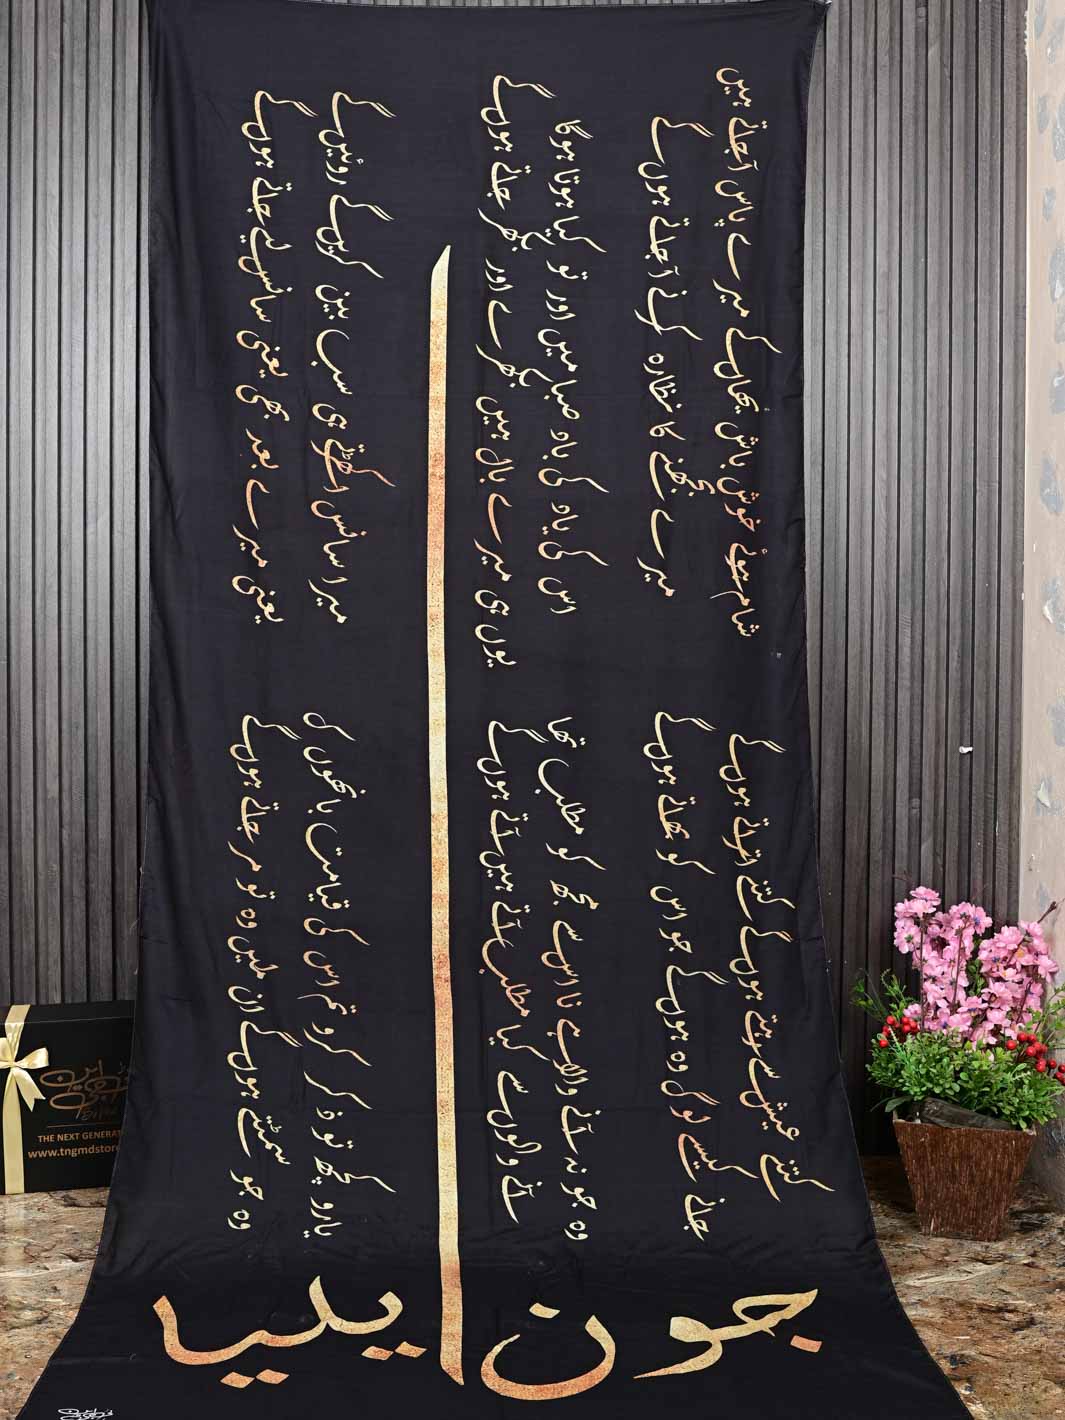 کتنے عیش سے رہتے ہوں گے کتنے اتراتے ہوں گے
جانے کیسے لوگ وہ ہوں گے جو اس کو بھاتے ہوں گے
شام ہوئے خوش باش یہاں کے میرے پاس آ جاتے ہیں
میرے بجھنے کا نظارہ کرنے آ جاتے ہوں گے
وہ جو نہ آنے والا ہے نا اس سے مجھ کو مطلب تھا
آنے والوں سے کیا مطلب آتے ہیں آتے ہوں گے
اس کی یاد کی باد صبا میں اور تو کیا ہوتا ہوگا
یوں ہی میرے بال ہیں بکھرے اور بکھر جاتے ہوں گے
یارو کچھ تو ذکر کرو تم اس کی قیامت بانھوں کا
وہ جو سمٹتے ہوں گے ان میں وہ تو مر جاتے ہوں گے
میرا سانس اکھڑتے ہی سب بین کریں گے روئیں گے
یعنی میرے بعد بھی یعنی سانس لیے جاتے ہوں گے
جون ایلیا
THE NEXT GENERAT
www.tngmdstore